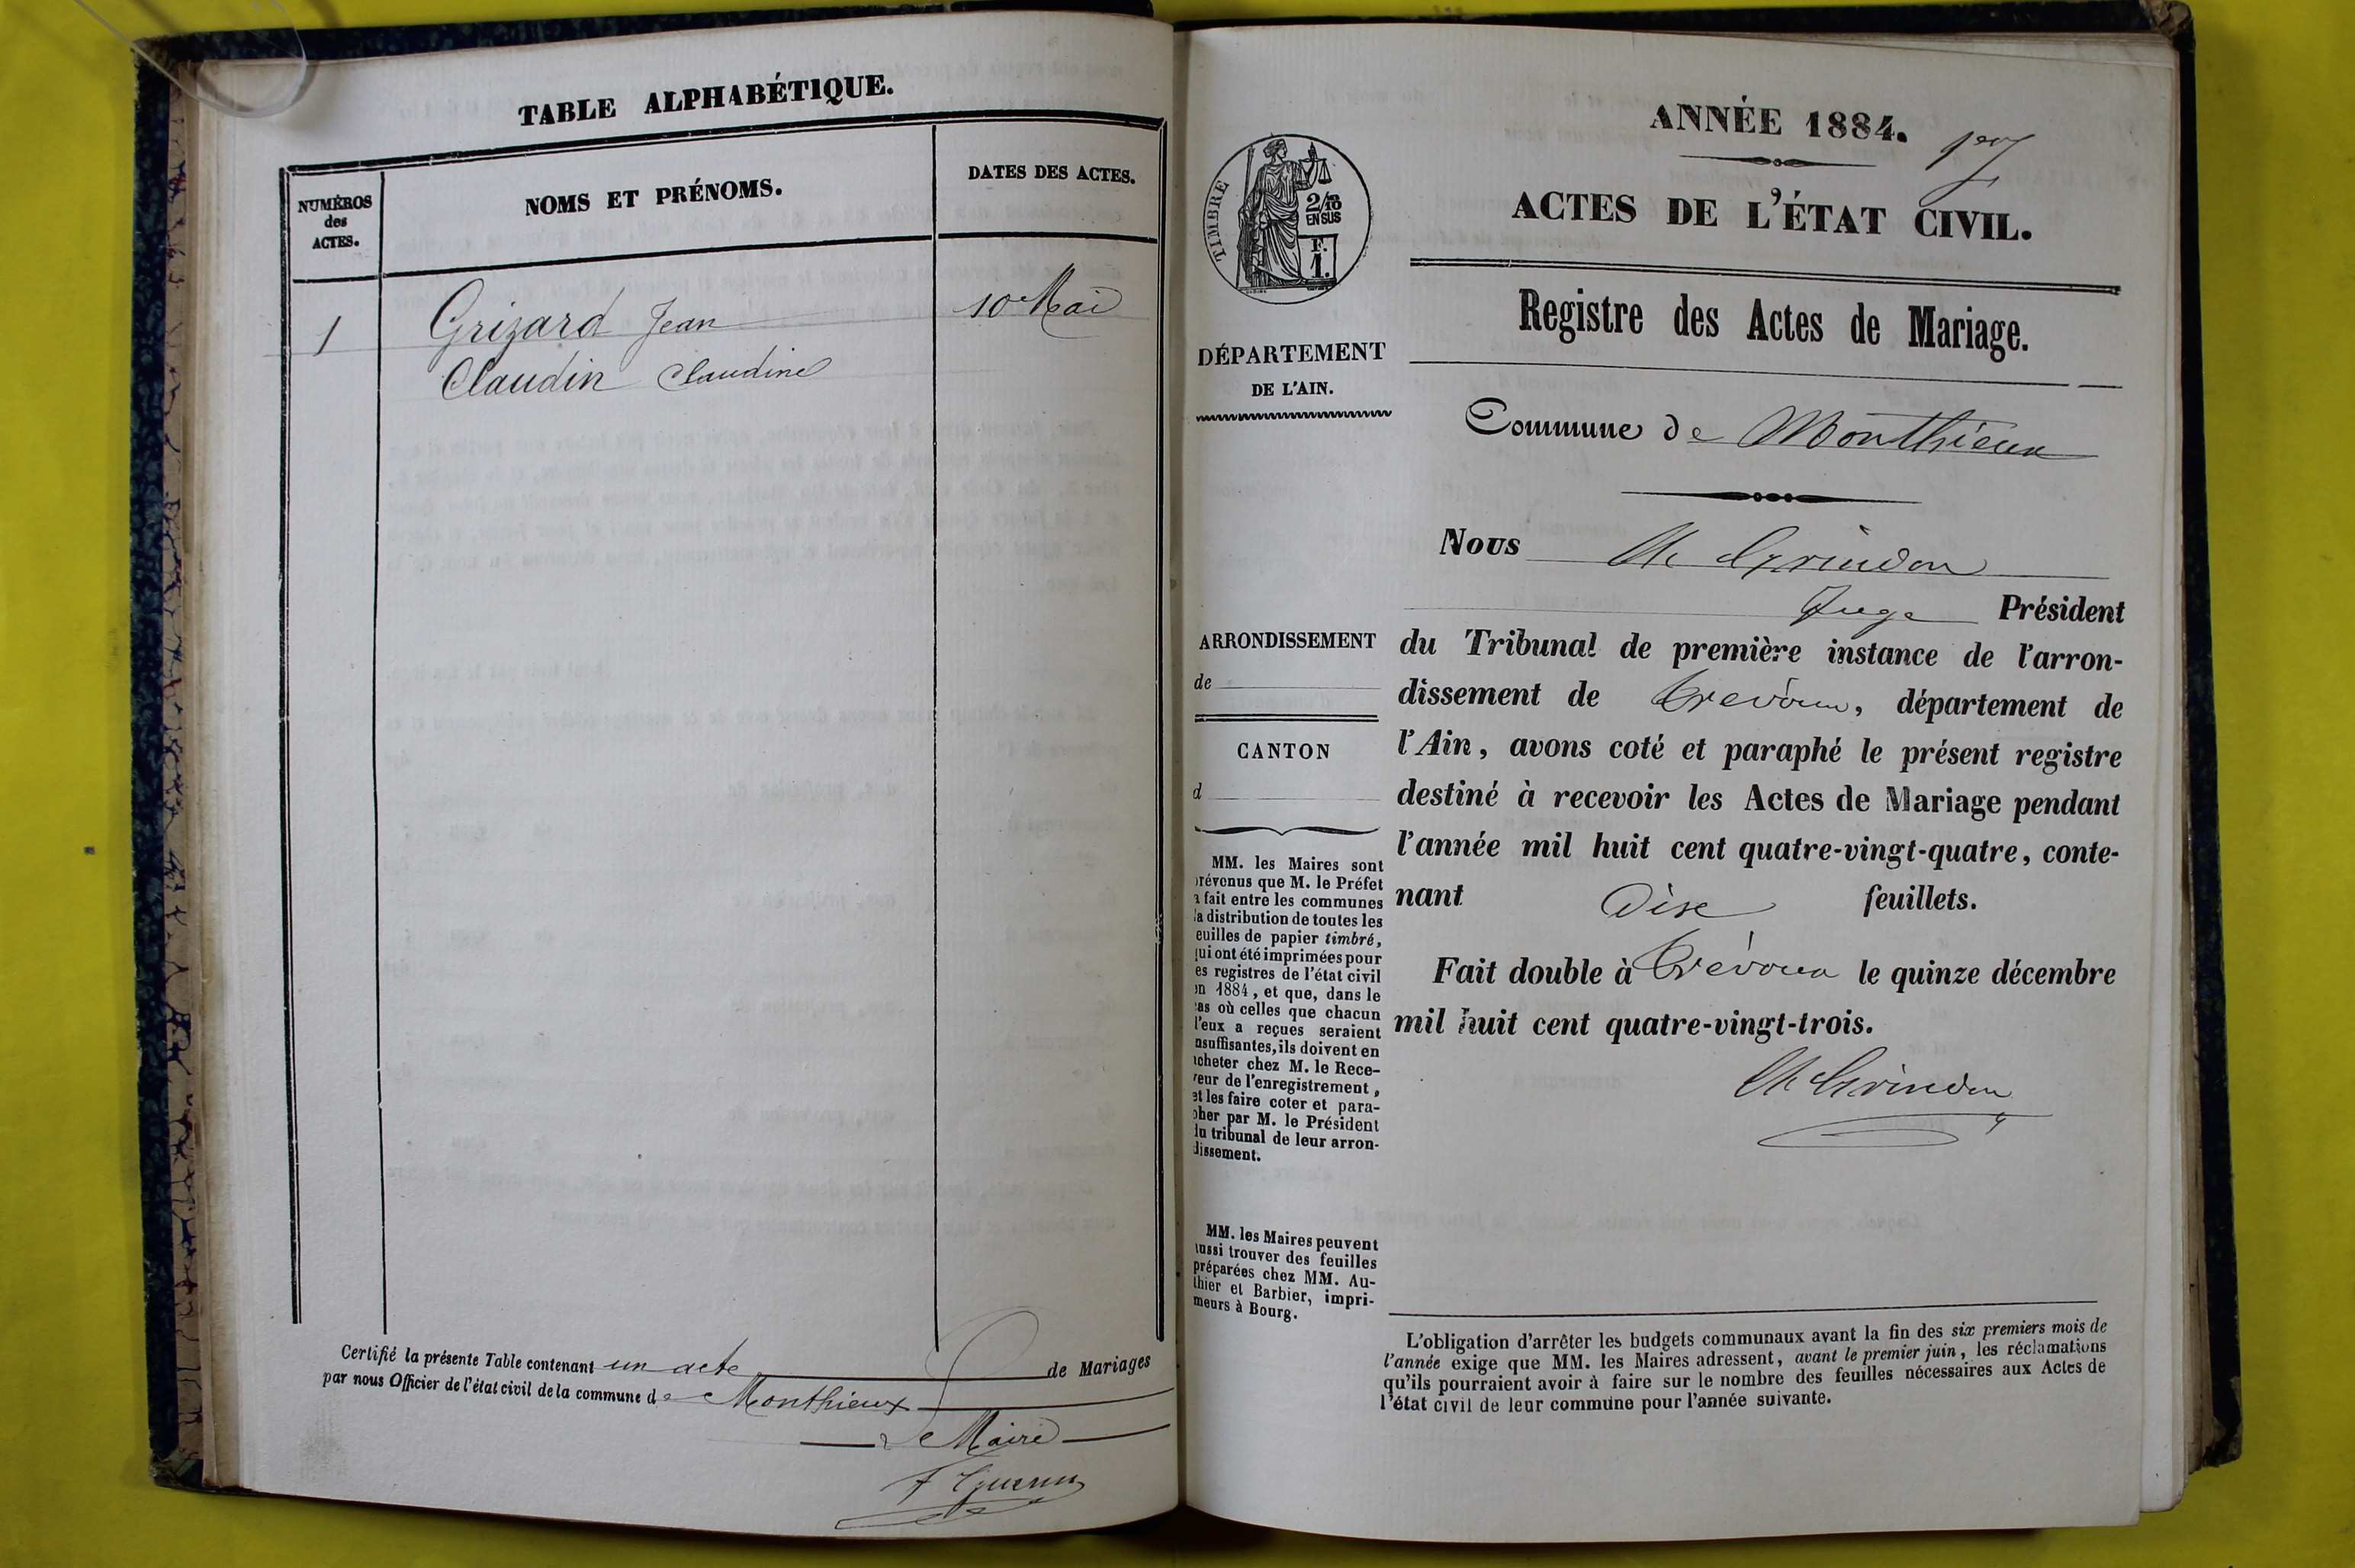 TABLE ALPHABÉTIQUE.
NUMÉROS
des
ACTES.
NOMS ET PRÉNOMS.
DATES DES ACTES.
1
Grizard Jean
10 Mai
Claudin Claudine
Certifié la présente Table contenant un acte de Mariages
par nous Officier de l'état civil de la commune de Monthieux
Le Maire
ANNÉE 1884.
ACTES DE L'ÉTAT CIVIL.
TIMBRE
2/10
EN SUS
F.
1.
Registre des Actes de Mariage.
DÉPARTEMENT
DE L'AIN.
Commune de Monthieux
Nous Ch Grindon
Juge Président
du Tribunal de première instance de l'arron-
dissement de Trévoux, département de
l'Ain, avons coté et paraphé le présent registre
destiné à recevoir les Actes de Mariage pendant
l'année mil huit cent quatre-vingt-quatre, conte-
nant Dix feuillets.
Fait double à Trévoux le quinze décembre
mil huit cent quatre-vingt-trois.
Ch Grindon
ARRONDISSEMENT
de
CANTON
d
MM. les Maires sont
révenus que M. le Préfet
a fait entre les communes
la distribution de toutes les
euilles de papier timbré,
qui ont été imprimées pour
es registres de l'état civil
en 1884, et que, dans le
cas où celles que chacun
l'eux a reçues seraient
nsuffisantes, ils doivent en
acheter chez M. le Rece-
veur de l'enregistrement,
et les faire coter et para-
pher par M. le Président
du tribunal de leur arron-
dissement.
MM. les Maires peuvent
aussi trouver des feuilles
préparées chez MM. Au-
thier et Barbier, impri-
meurs à Bourg.
L'obligation d'arrêter les budgets communaux avant la fin des six premiers mois de
l'année exige que MM. les Maires adressent, avant le premier juin, les réclamations
qu'ils pourraient avoir à faire sur le nombre des feuilles nécessaires aux Actes de
l'état civil de leur commune pour l'année suivante.